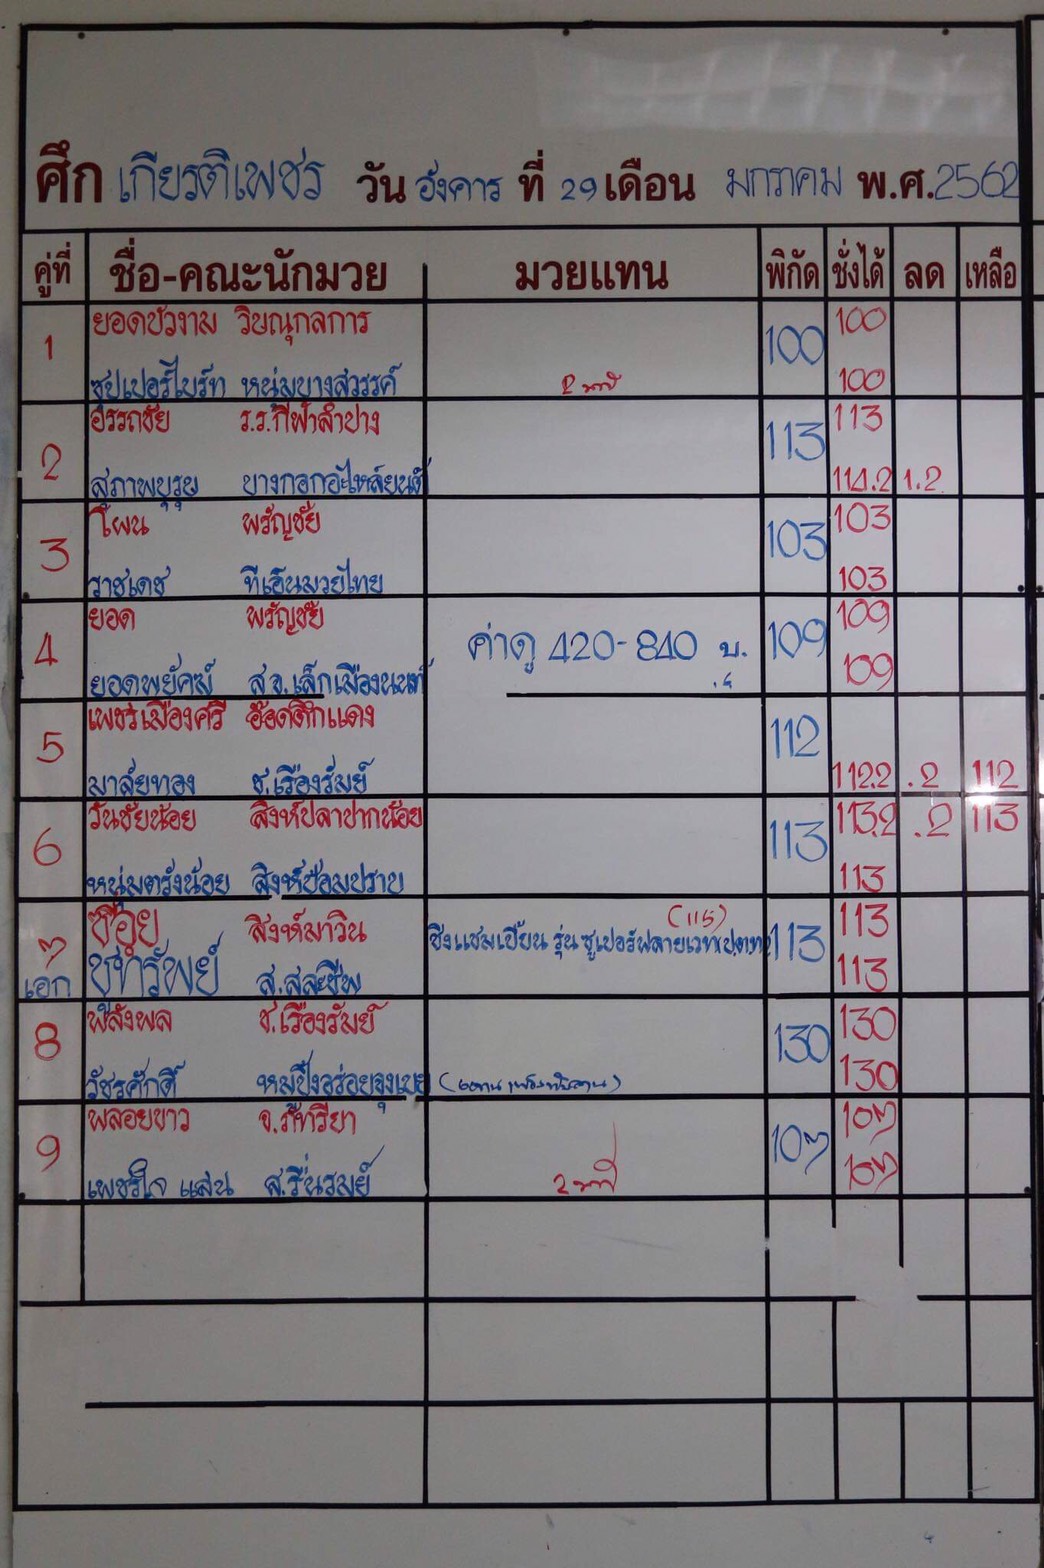 ศึก เกียรติเพชร วัน อังคาร ที่ 29 เดือน มกราคม พ.ศ.2562
คู่ที่ ชื่อ-คณะนักมวย มวยแทน พิกัด ชั่งได้ ลด เหลือ
1 ยอดบัวงาม วิษณุกลการ 100 100
ซุปเปอร์ไบร์ท หนุ่มบางสวรรค์ 100
2 อรรถชัย ร.ร.กีฬาลำปาง 113 113
สุภาพบุรุษ บางกอกอะไหล่ยนต์ 114.2 1.2
3 โผน พรัญชัย 103 103
ราชเดช ทีเอ็นมวยไทย 103
4 ยอด พรัญชัย ค่าดู 420-840 บ. 109 109
ยอดพยัคฆ์ ส.จ.เล็กเมืองนนท์ 109
5 เพชรเมืองศรี อ๊อดตึกแดง 112
มาลัยทอง ช.เรืองรัมย์ 112.2 .2 112
6 วันชัยน้อย สิงห์ปลาปากน้อย 113 113.2 .2 113
หนุ่มตรังน้อย สิงห์ป้อมปราบ 113
7 สิงห์มาวิน (115) 113 113
เอก ส.สละชีพ ชิงแชมเปี้ยน รุ่น ซุเปอร์ฟลายเวท ป.ต.ท 113
8 พลังพล ช.เรืองรัมย์ 130 130
วัชรศักดิ์ หมูปิ้งอร่อยจุงเบย 130
9 พลอยขาว จ.ภัทรียา 107 107
เพชรใจ แสน ส.รื่นรมย์ 107